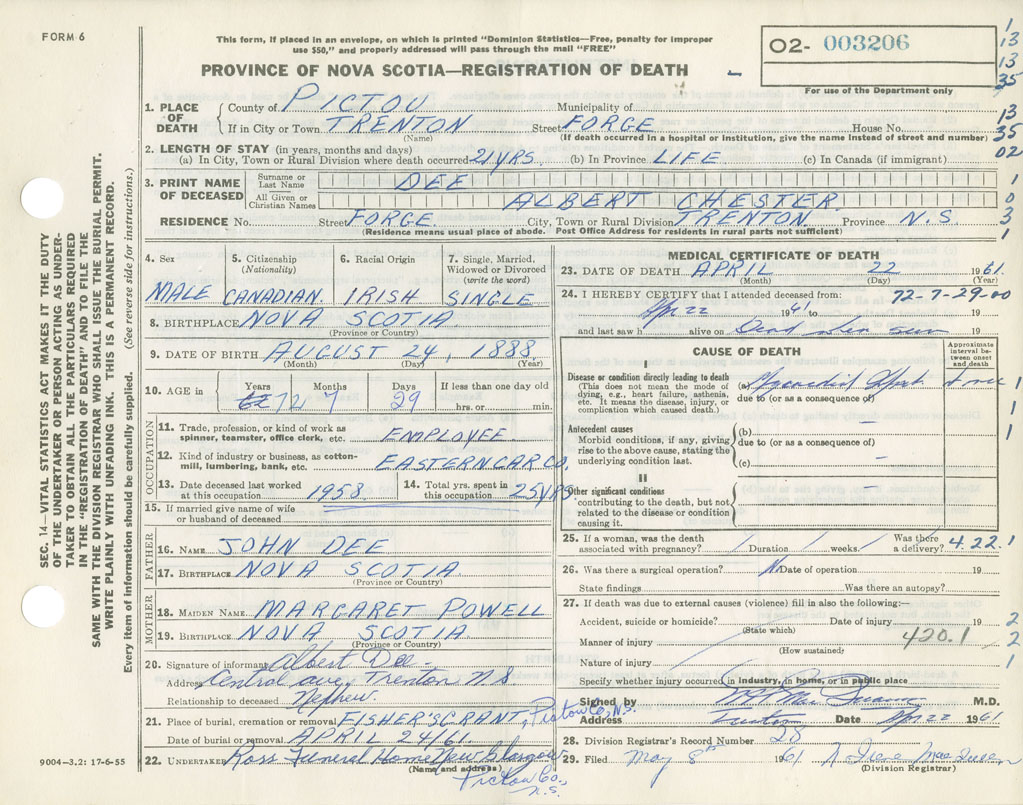 FORM 6
This form, if placed in an envelope, on which is printed "Dominion Statistics—Free, penalty for improper
use $50," and properly addressed will pass through the mail "FREE"
PROVINCE OF NOVA SCOTIA—REGISTRATION OF DEATH
O2- 003206
For use of the Department only
1
13
13
35
13
35
02
1
0
3
1
SEC. 14—VITAL STATISTICS ACT MAKES IT THE DUTY
OF THE UNDERTAKER OR PERSON ACTING AS UNDER-
TAKER TO OBTAIN ALL THE PARTICULARS REQUIRED
IN THE "REGISTRATION OF DEATH" AND TO FILE THE
SAME WITH THE DIVISION REGISTRAR WHO SHALL ISSUE THE BURIAL PERMIT.
WRITE PLAINLY WITH UNFADING INK. THIS IS A PERMANENT RECORD.
Every item of information should be carefully supplied. (See reverse side for instructions.)
1. PLACE OF DEATH County of PICTOU Municipality of
If in City or Town TRENTON Street FORGE House No.
(Name) (If death occurred in a hospital or institution, give the name instead of street and number)
2. LENGTH OF STAY (in years, months and days)
(a) In City, Town or Rural Division where death occurred 21 YRS (b) In Province LIFE (c) In Canada (if immigrant)
3. PRINT NAME OF DECEASED Surname or Last Name DEE
All Given or Christian Names ALBERT CHESTER
RESIDENCE No. Street FORGE City, Town or Rural Division TRENTON Province N.S.
(Residence means usual place of abode. Post Office Address for residents in rural parts not sufficient)
4. Sex 5. Citizenship (Nationality) 6. Racial Origin 7. Single, Married, Widowed or Divorced (write the word)
MALE CANADIAN IRISH SINGLE
8. BIRTHPLACE NOVA SCOTIA
(Province or Country)
9. DATE OF BIRTH AUGUST 24, 1888
(Month) (Day) (Year)
10. AGE in Years Months Days If less than one day old
72 7 29 hrs. or min.
OCCUPATION
11. Trade, profession, or kind of work as
spinner, teamster, office clerk, etc. EMPLOYEE
12. Kind of industry or business, as cotton-
mill, lumbering, bank, etc. EASTERN CAR CO.
13. Date deceased last worked at this occupation 1958 14. Total yrs. spent in this occupation 25 YRS
15. If married give name of wife
or husband of deceased
FATHER
16. NAME JOHN DEE
17. BIRTHPLACE NOVA SCOTIA
(Province or Country)
MOTHER
18. MAIDEN NAME MARGARET POWELL
19. BIRTHPLACE NOVA SCOTIA
(Province or Country)
20. Signature of informant Albert Dee
Address Central ave, Trenton N S
Relationship to deceased Nephew.
21. Place of burial, cremation or removal FISHER'S GRANT, Pictou Co, N.S.
Date of burial or removal APRIL 24/61
22. UNDERTAKER Ross Funeral Home New Glasgow
(Name and address) Pictou Co., N.S.
9004—3.2: 17-6-55
MEDICAL CERTIFICATE OF DEATH
23. DATE OF DEATH APRIL 22 1961.
(Month) (Day) (Year)
24. I HEREBY CERTIFY that I attended deceased from: 72-7-29-00
Apr 22 1961 to 19
and last saw h alive on Dead when seen 19
CAUSE OF DEATH
Approximate interval between onset and death
I
Disease or condition directly leading to death
(This does not mean the mode of
dying, e.g., heart failure, asthenia,
etc. It means the disease, injury, or
complication which caused death.)
(a) 1
due to (or as a consequence of)
1
Antecedent causes
Morbid conditions, if any, giving
rise to the above cause, stating the
underlying condition last.
(b) — 1
due to (or as a consequence of)
(c) —
II
Other significant conditions
contributing to the death, but not
related to the disease or condition
causing it.
—
25. If a woman, was the death
associated with pregnancy? Duration weeks Was there a delivery? 4.22.1
26. Was there a surgical operation? N Date of operation 19
State findings Was there an autopsy?
27. If death was due to external causes (violence) fill in also the following:—
Accident, suicide or homicide? Date of injury 19 2
(State which)
Manner of injury 420.1 2
(How sustained)
Nature of injury 1
Specify whether injury occurred in industry, in home, or in public place
Signed by M.D.
Address Trenton Date Apr 22 1961
28. Division Registrar's Record Number 28
29. Filed May 8th 1961
(Division Registrar)